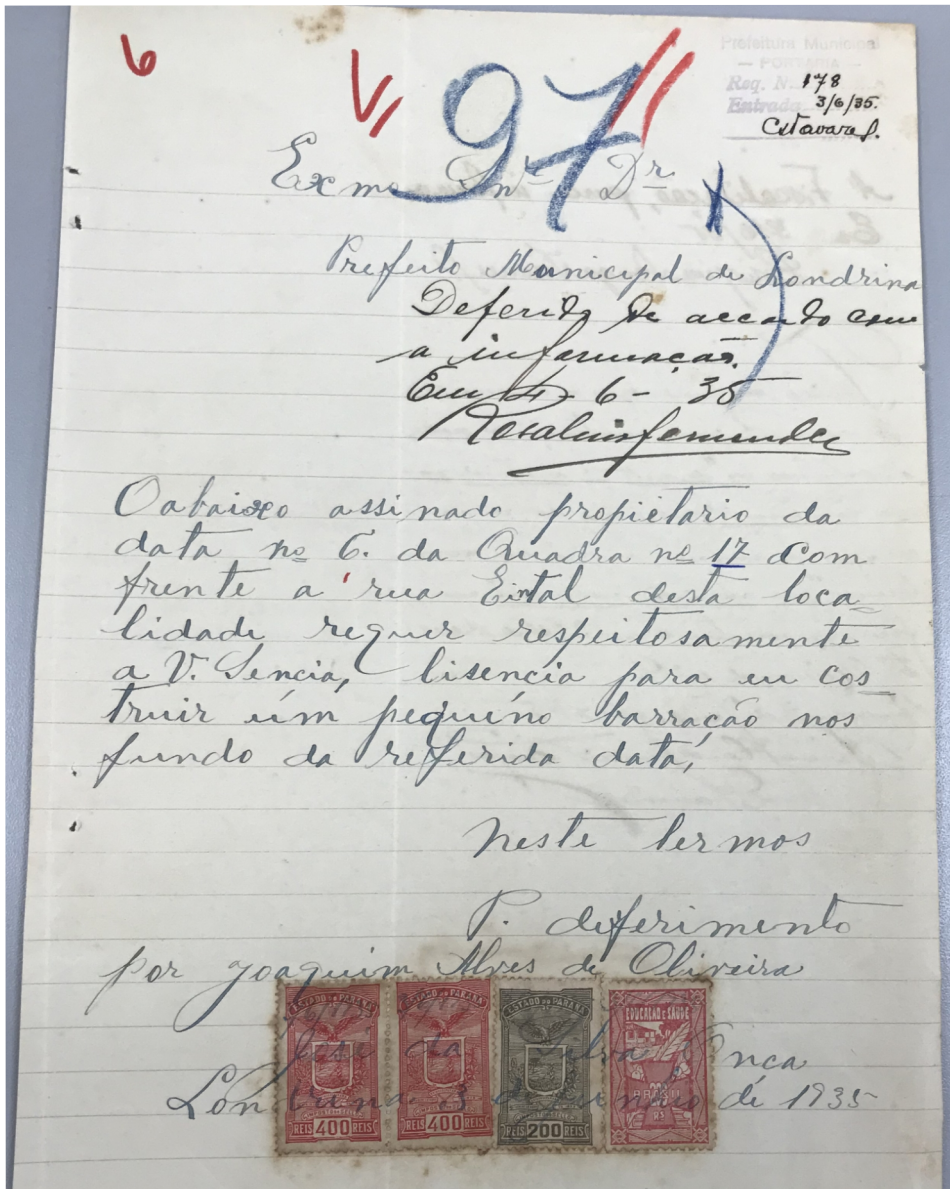 6
97
Prefeitura Municipal
— PORTARIA —
Req. N. 178
Entrada 3/6/35.
Exmo Snr. Dr
Prefeito Municipal de Londrina
Deferido de accordo com
a informação.
Em 4-6-35
Oabaixo assinado propietario da
data nº 6. da Quadra nº 17 com
frente a rua desta loca-
lidade requer respeitosamente
a V. Sencia, lisencia para eu cos-
truir úm pequéno barracão nos
fundo da referida data,
Neste termos
P. deferimento
por Joaquim Alves de Oliveira
José da Silva
Londrina 3 de Junho di 1935
ESTADO DO PARANÁ
REIS 400 REIS
ESTADO DO PARANÁ
REIS 400 REIS
ESTADO DO PARANÁ
REIS 200 REIS
EDUCAÇÃO E SAÚDE
BRASIL
200
RS